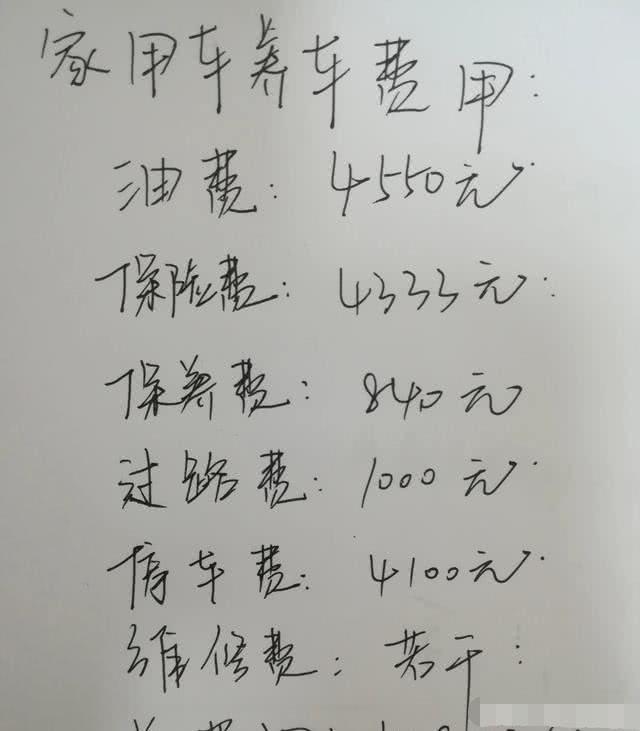 家用车养车费用:
油费: 4550元
保险费: 4333元
保养费: 840元
过路费: 1000元
停车费: 4100元
维修费: 若干